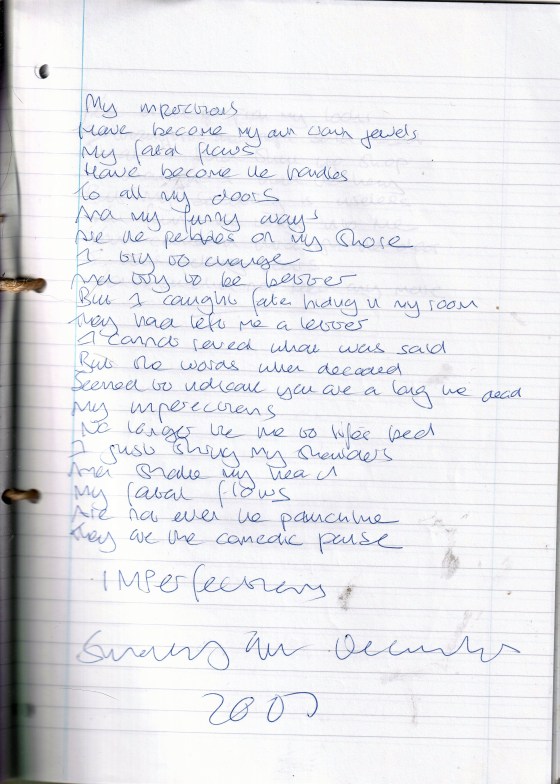 My imperections
Have become my own crown jewels
My fatal flaws
Have become the handles
To all my doors
And my funny ways
Are the pebbles on my shore
I try to change
And try to be better
But I caught fate hiding in my room
They had left me a letter
I cannot reveal what was said
But the words when decoded
Seemed to indicate you are a long time dead
My imperections
No longer tie me to life's bed
I just shrug my shoulders
And shake my head
My fatal flaws
Are not even the punchline
They are the comedic pause
IMPerfections
Sunday December
2007